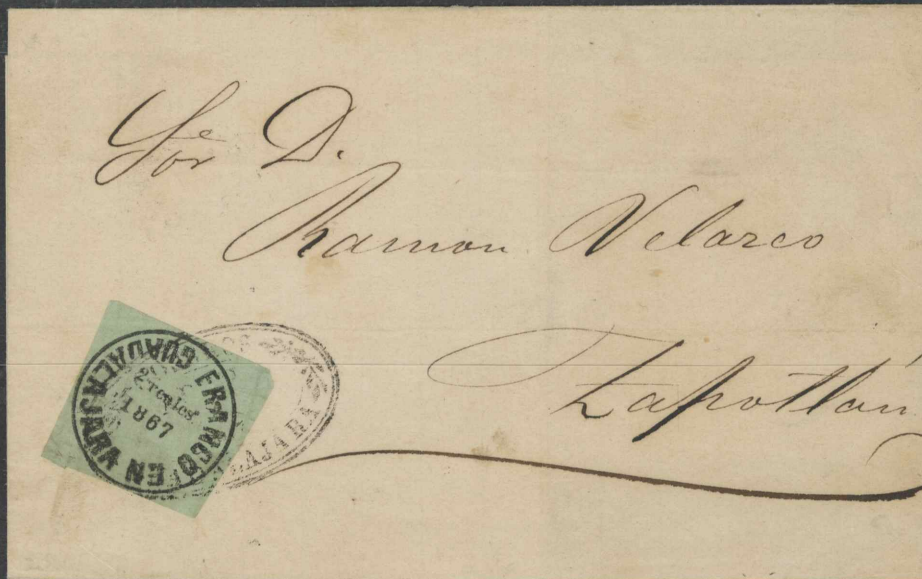 Sor. D.
Ramon Velasco
Zapotlán
FRANCO EN GUADALAJARA
2 reales
1867
LAJARA